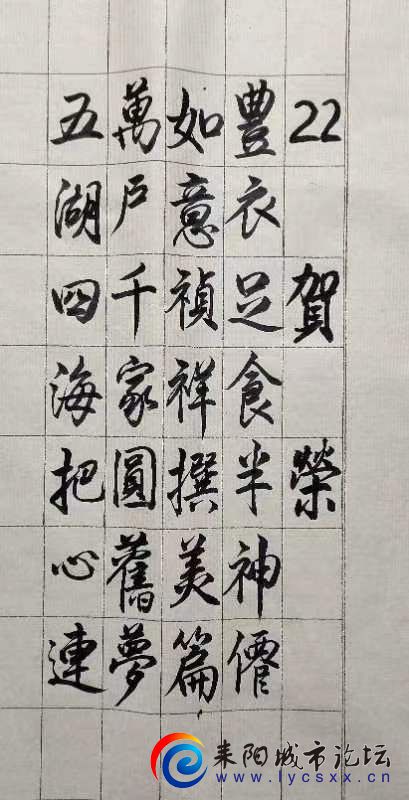 22 賀 榮
豊衣足食半神僊
如意禎祥撰美篇
萬户千家圓舊夢
五湖四海把心連
耒阳城市论坛
www.lycsxx.cn